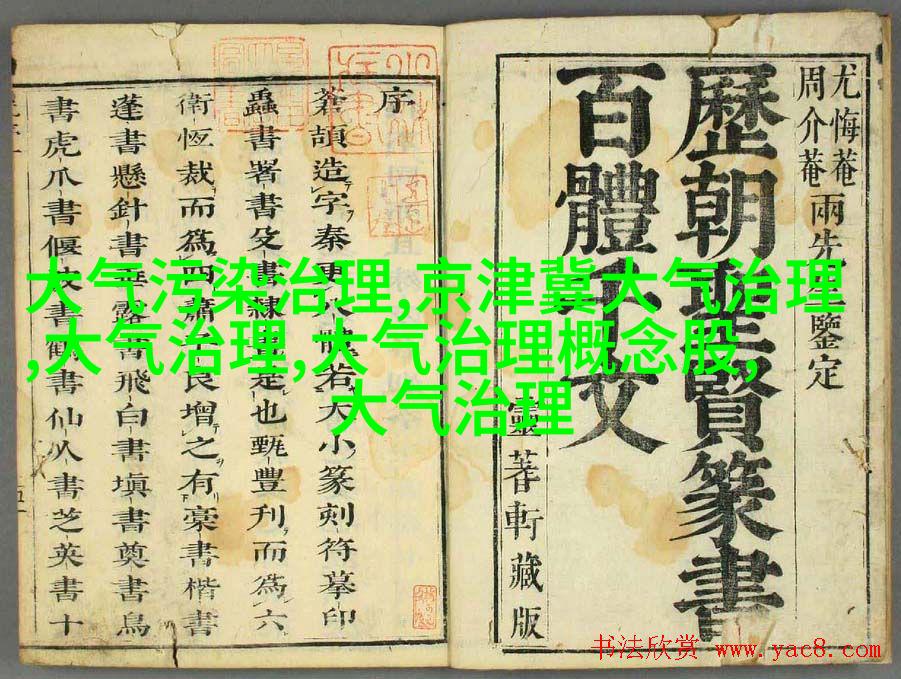 尤悔菴
周介菴
兩先生鑒定
歷朝聖賢篆書
百體千文
靈蓍軒藏版
序
蒼頡造字秦更八體若大小篆刻符摹印
蟲書署書殳書隸書是也甄豐刋而爲六
衛恆裁而爲四蕭子良增之有稾書楷書
蓬書懸針書垂露書飛白書塡書奠書鳥
書虎爪書偃波書鶴書仙人書芝英書十
大气污染治理,京津冀大气治理
,大气治理,大气治理概念股,
大气治理
书法欣赏 www.yac8.com